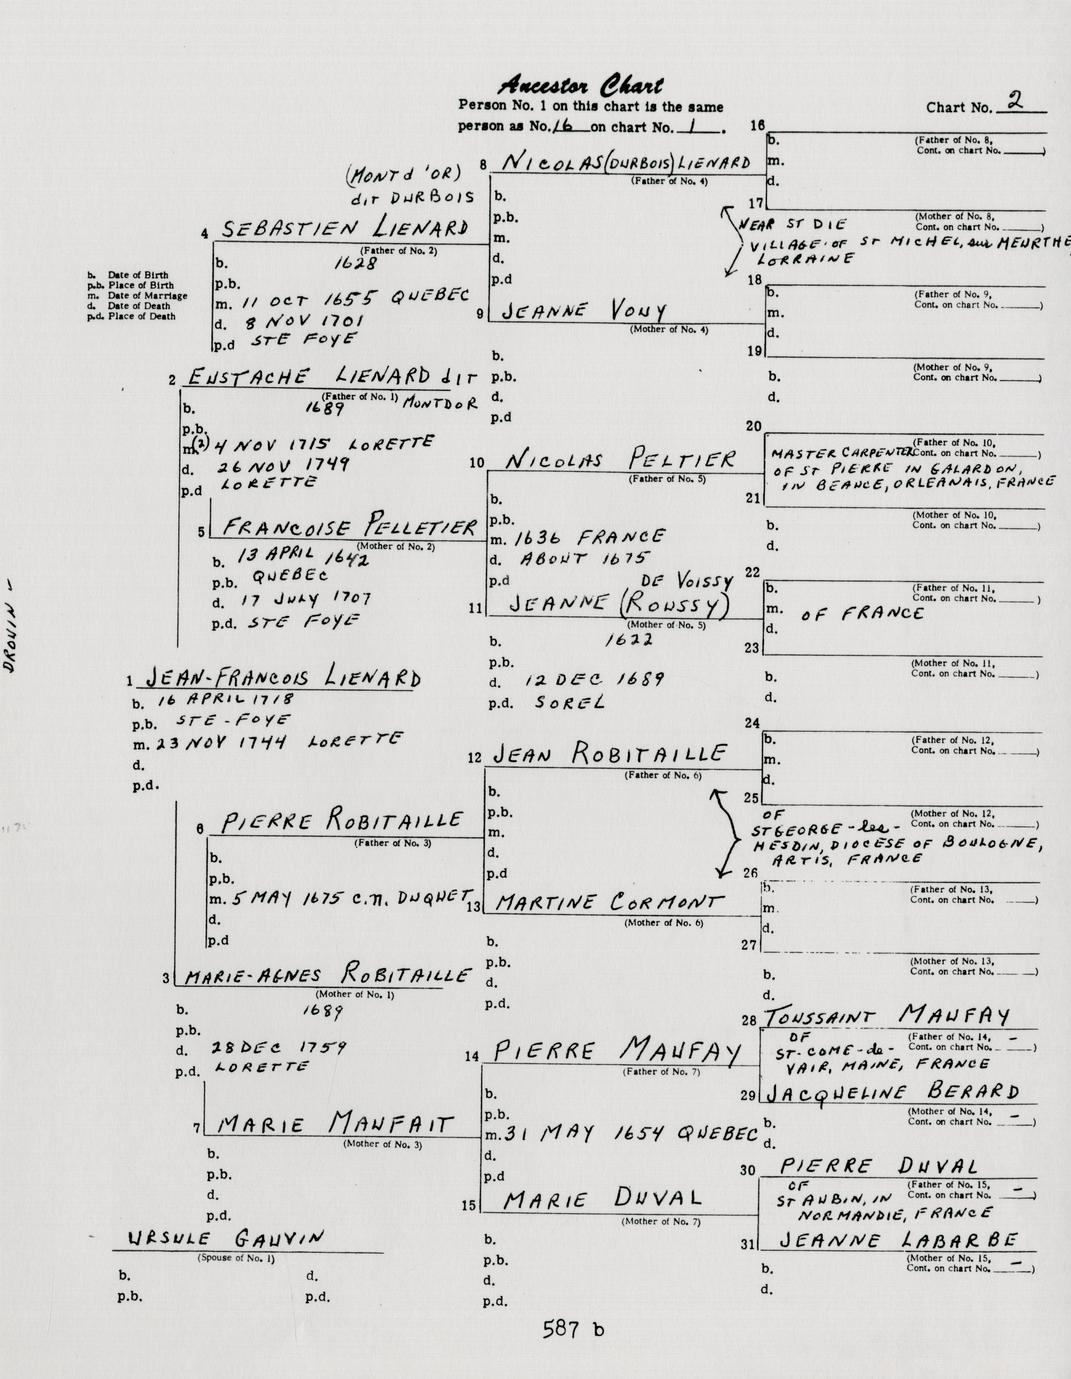 Ancestor Chart
Person No. 1 on this chart is the same
person as No. 16 on chart No. 1.
Chart No. 2
b. Date of Birth
p.b. Place of Birth
m. Date of Marriage
d. Date of Death
p.d. Place of Death
DROUIN
1 JEAN-FRANCOIS LIENARD
b. 16 APRIL 1718
p.b. STE-FOYE
m. 23 NOV 1744 LORETTE
d.
p.d.
2 EUSTACHE LIENARD dit
MONTDOR
(Father of No. 1)
b. 1689
p.b.
m. (2) 4 NOV 1715 LORETTE
d. 26 NOV 1749
p.d LORETTE
3 MARIE-AGNES ROBITAILLE
(Mother of No. 1)
b. 1689
p.b.
d. 28 DEC 1759
p.d. LORETTE
URSULE GAUVIN
(Spouse of No. 1)
b. d.
p.b. p.d.
(MONT d'OR)
dit DURBOIS
4 SEBASTIEN LIENARD
(Father of No. 2)
b. 1628
p.b.
m. 11 OCT 1655 QUEBEC
d. 8 NOV 1701
p.d STE FOYE
5 FRANCOISE PELLETIER
(Mother of No. 2)
b. 13 APRIL 1642
p.b. QUEBEC
d. 17 JULY 1707
p.d. STE FOYE
6 PIERRE ROBITAILLE
(Father of No. 3)
b.
p.b.
m. 5 MAY 1675 c.n. DUQUET
d.
p.d
7 MARIE MAUFAIT
(Mother of No. 3)
b.
p.b.
d.
p.d.
8 NICOLAS (DURBOIS) LIENARD
(Father of No. 4)
b.
p.b.
m.
d.
p.d
9 JEANNE VOUY
(Mother of No. 4)
b.
p.b.
d.
p.d
NEAR ST DIE
VILLAGE OF ST MICHEL, sur MEURTHE
LORRAINE
10 NICOLAS PELTIER
(Father of No. 5)
b.
p.b.
m. 1636 FRANCE
d. ABOUT 1675
p.d
DE VOISSY
11 JEANNE (ROUSSY)
(Mother of No. 5)
b. 1622
p.b.
d. 12 DEC 1689
p.d. SOREL
12 JEAN ROBITAILLE
(Father of No. 6)
b.
p.b.
m.
d.
p.d
13 MARTINE CORMONT
(Mother of No. 6)
b.
p.b.
d.
p.d.
OF
ST GEORGE-les-
HESDIN, DIOCESE OF BOULOGNE,
ARTIS, FRANCE
14 PIERRE MAUFAY
(Father of No. 7)
b.
p.b.
m. 31 MAY 1654 QUEBEC
d.
p.d
15 MARIE DUVAL
(Mother of No. 7)
b.
p.b.
d.
p.d.
16
(Father of No. 8,
Cont. on chart No. )
b.
m.
d.
17
(Mother of No. 8,
Cont. on chart No. )
18
(Father of No. 9,
Cont. on chart No. )
b.
m.
d.
19
(Mother of No. 9,
Cont. on chart No. )
b.
d.
20
(Father of No. 10,
Cont. on chart No. )
MASTER CARPENTER
OF ST PIERRE IN GALARDON,
IN BEANCE, ORLEANAIS, FRANCE
21
(Mother of No. 10,
Cont. on chart No. )
b.
d.
22
(Father of No. 11,
Cont. on chart No. )
b.
m. OF FRANCE
d.
23
(Mother of No. 11,
Cont. on chart No. )
b.
d.
24
(Father of No. 12,
Cont. on chart No. )
b.
m.
d.
25
(Mother of No. 12,
Cont. on chart No. )
26
(Father of No. 13,
Cont. on chart No. )
b.
m.
d.
27
(Mother of No. 13,
Cont. on chart No. )
b.
d.
28 TOUSSAINT MAUFAY
(Father of No. 14,
Cont. on chart No. - )
OF
ST-COME-de-
VAIR, MAINE, FRANCE
29 JACQUELINE BERARD
(Mother of No. 14,
Cont. on chart No. - )
b.
d.
30 PIERRE DUVAL
(Father of No. 15,
Cont. on chart No. - )
OF
ST AUBIN, IN
NORMANDIE, FRANCE
31 JEANNE LABARBE
(Mother of No. 15,
Cont. on chart No. - )
b.
d.
587 b